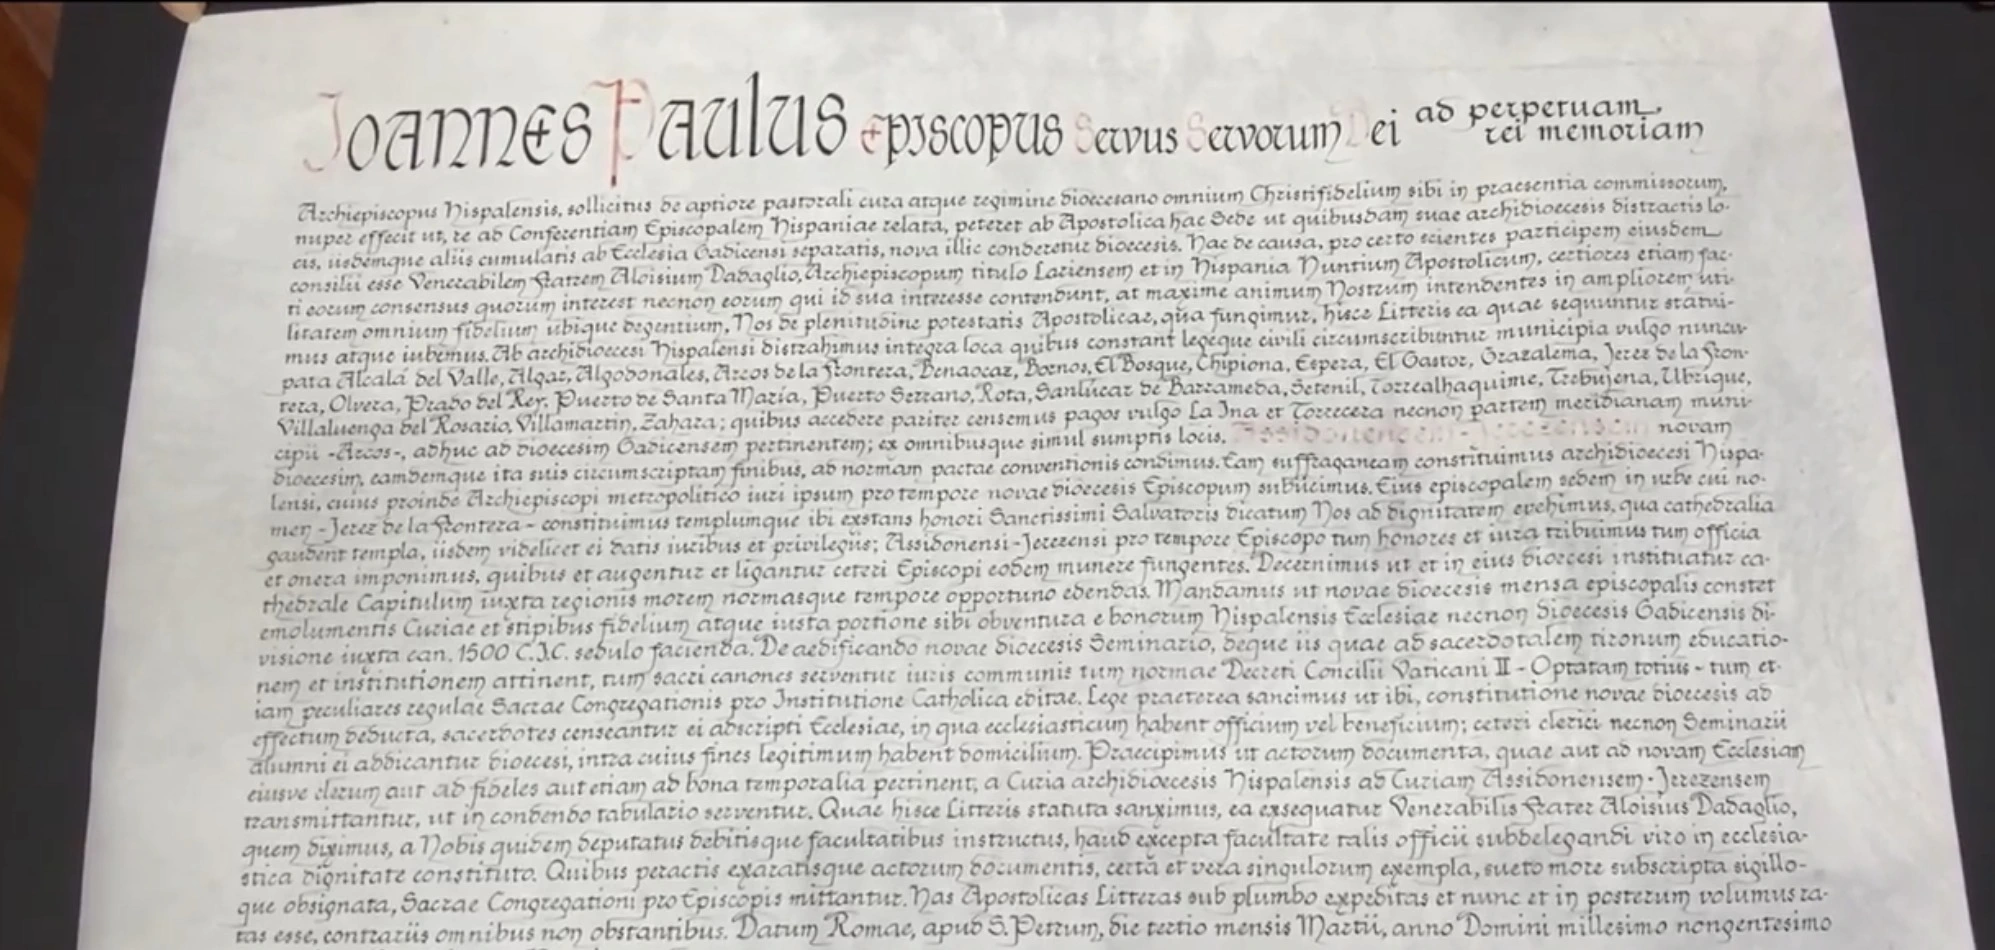 Joannes Paulus Episcopus Servus Servorum Dei ad perpetuam rei memoriam
Archiepiscopus Hispalensis, sollicitus de aptiore pastorali cura atque regimine dioecesano omnium Christifidelium sibi in praesentia commissorum,
nuper effecit ut, re ad Conferentiam Episcopalem Hispaniae relata, peteret ab Apostolica hac Sede ut quibusdam suae archidioecesis distractis lo-
cis, iisdemque aliis cumulatis ab Ecclesia Gadicensi separatis, nova illic conderetur dioecesis. Hac de causa, pro certo scientes participem eiusdem
consilii esse Venerabilem Fratrem Aloisium Dadaglio, Archiepiscopum titulo Lariensem et in Hispania Nuntium Apostolicum, certiores etiam fac-
ti eorum consensus quorum interest necnon eorum qui id sua interesse contendunt, at maxime animum Nostrum intendentes in ampliorem uti-
litatem omnium fidelium ubique degentium, Nos de plenitudine potestatis Apostolicae, qua fungimur, hisce Litteris ea quae sequuntur statui-
mus atque iubemus. Ab archidioecesi Hispalensi distrahimus integra loca quibus constant legeque civili circumscribuntur municipia vulgo nuncu-
pata Alcalá del Valle, Algar, Algodonales, Arcos de la Frontera, Benaocaz, Bornos, El Bosque, Chipiona, Espera, El Gastor, Grazalema, Jerez de la Fron-
tera, Olvera, Prado del Rey, Puerto de Santa María, Puerto Serrano, Rota, Sanlúcar de Barrameda, Setenil, Torrealhaquime, Trebujena, Ubrique,
Villaluenga del Rosario, Villamartin, Zahara; quibus accedere pariter censemus pagos vulgo La Ina et Torrecera necnon partem meridianam muni-
cipii -Arcos-, adhuc ad dioecesim Gadicensem pertinentem; ex omnibusque simul sumptis locis, Assidonensem-Jerezensem novam
dioecesim, eamdemque ita suis circumscriptam finibus, ad normam pactae conventionis condimus. Eam suffraganeam constituimus archidioecesi Hispa-
lensi, cuius proinde Archiepiscopi metropolitico iuri ipsum pro tempore novae dioecesis Episcopum subiicimus. Eius episcopalem sedem in urbe cui no-
men -Jerez de la Frontera- constituimus templumque ibi exstans honori Sanctissimi Salvatoris dicatum Nos ad dignitatem evehimus, qua cathedralia
gaudent templa, iisdem videlicet ei datis iuribus et privilegiis; Assidonensi-Jerezensi pro tempore Episcopo tum honores et iura tribuimus tum officia
et onera imponimus, quibus et augentur et ligantur ceteri Episcopi eodem munere fungentes. Decernimus ut et in eius dioecesi instituatur ca-
thedrale Capitulum iuxta regionis morem normasque tempore opportuno edendas. Mandamus ut novae dioecesis mensa episcopalis constet
emolumentis Curiae et stipibus fidelium atque iusta portione sibi obventura e bonorum Hispalensis Ecclesiae necnon dioecesis Gadicensis di-
visione iuxta can. 1500 C.J.C. sedulo facienda. De aedificando novae dioecesis Seminario, deque iis quae ad sacerdotalem tironum educatio-
nem et institutionem attinent, tum sacri canones serventur iuris communis tum normae Decreti Concilii Vaticani II -Optatam totius- tum et-
iam peculiares regulae Sacrae Congregationis pro Institutione Catholica editae. Lege praeterea sancimus ut ibi, constitutione novae dioecesis ad
effectum deducta, sacerdotes censeantur ei adscripti Ecclesiae, in qua ecclesiasticum habent officium vel beneficium; ceteri clerici necnon Seminarii
alumni ei addicantur dioecesi, intra cuius fines legitimum habent domicilium. Praecipimus ut actorum documenta, quae aut ad novam Ecclesiam
eiusve clerum aut ad fideles aut etiam ad bona temporalia pertinent, a Curia archidioecesis Hispalensis ad Curiam Assidonensem-Jerezensem
transmittantur, ut in condendo tabulario serventur. Quae hisce Litteris statuta sanximus, ea exsequatur Venerabilis Frater Aloisius Dadaglio,
quem diximus, a Nobis quidem deputatus debitisque facultatibus instructus, haud excepta facultate talis officii subdelegandi viro in ecclesia-
stica dignitate constituto. Quibus peractis exaratisque actorum documentis, certa et vera singulorum exempla, sueto more subscripta sigillo-
que obsignata, Sacrae Congregationi pro Episcopis mittantur. Has Apostolicas Litteras sub plumbo expeditas et nunc et in posterum volumus ra-
tas esse, contrariis omnibus non obstantibus. Datum Romae, apud S. Petrum, die tertio mensis Martii, anno Domini millesimo nongentesimo